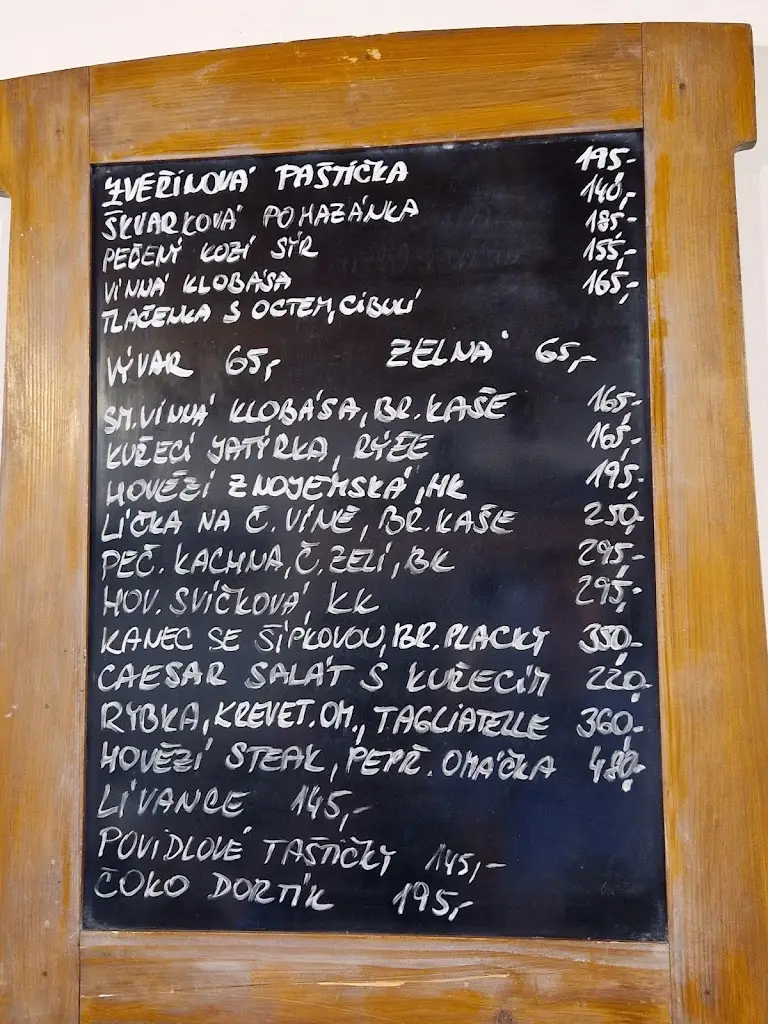 ZVĚŘINOVÁ PAŠTIČKA 195,-
ŠKVARKOVÁ POMAZÁNKA 140,-
PEČENÝ KOZÍ SÝR 185,-
VINNÁ KLOBÁSA 155,-
TLAČENKA S OCTEM, CIBULÍ 165,-
VÝVAR 65,- ZELNÁ 65,-
SM. VINNÁ KLOBÁSA, BR. KAŠE 165,-
KUŘECÍ JATÝRKA, RÝŽE 165,-
HOVĚZÍ ZNOJEMSKÁ, HK 195,-
LÍČKA NA Č. VÍNĚ, BR. KAŠE 250,-
PEČ. KACHNA, Č. ZELÍ, BK 295,-
HOV. SVÍČKOVÁ, KK 295,-
KANEC SE ŠÍPKOVOU, BR. PLACKY 350,-
CAESAR SALÁT S KUŘECÍM 220,-
RYBKA, KREVET. OM., TAGLIATELLE 360,-
HOVĚZÍ STEAK, PEPŘ. OMÁČKA 480,-
LÍVANCE 145,-
POVIDLOVÉ TAŠTIČKY 145,-
ČOKO DORTÍK 195,-